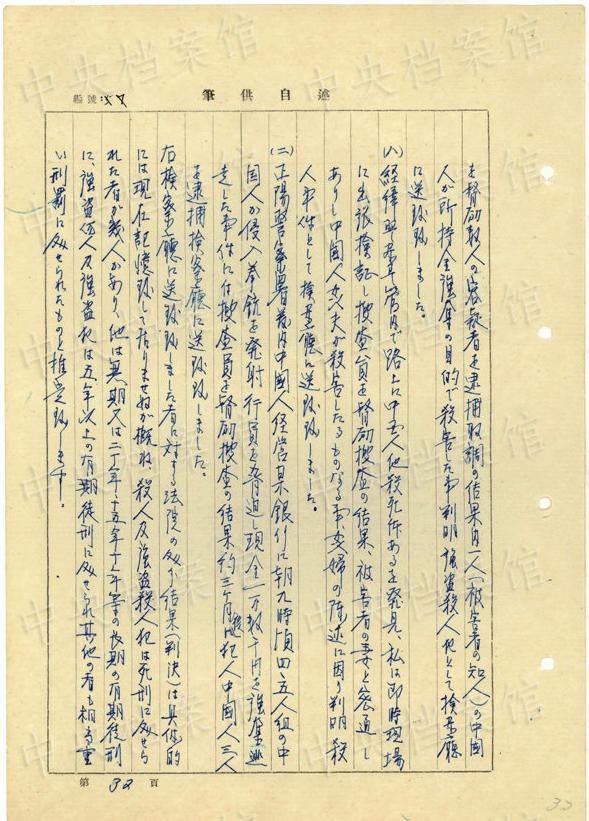 編號：57
筆供自述
を督励数人の容疑者を逮捕取調の結果内一人（被害者の知人）の中国
人が所持金強奪の目的で殺害した事判明強盗殺人犯として検察廳
に送致致しました。
(八)経緯 管内で路上に中国人他殺死体あるを発見、私は即時現場
に出張検証し捜査員を督励捜査の結果、被害者の妻と密通し
ありし中国人 夫が殺害したるものなる事 婦の陳述に因り判明 殺
人事件として検察廳に送致致しました。
(二)正陽警察署管内中国人経営某銀行に朝九時頃四、五人組の中
国人が侵入拳銃を発射行員を脅迫し現金一万数千円を強奪逃
走した事件には捜査員を督励捜査の結果約三ヶ月後犯人中国人三人
を逮捕検察廳に送致致しました。
右検察廳に送致致しました者に対する法院の 結果（判決）は具体的
には現在記憶致して居りませぬが概ね、殺人及強盗殺人犯は死刑に処せら
れた者が数人かあり、他は無期又は二十年、十五年、十年等の長期の有期徒刑
に、強盗 人及強盗犯は五年以上の有期徒刑に処せられ其他の者も相当重
い刑罰に処せられたものと推定致します。
第 32 頁
32
中央档案馆